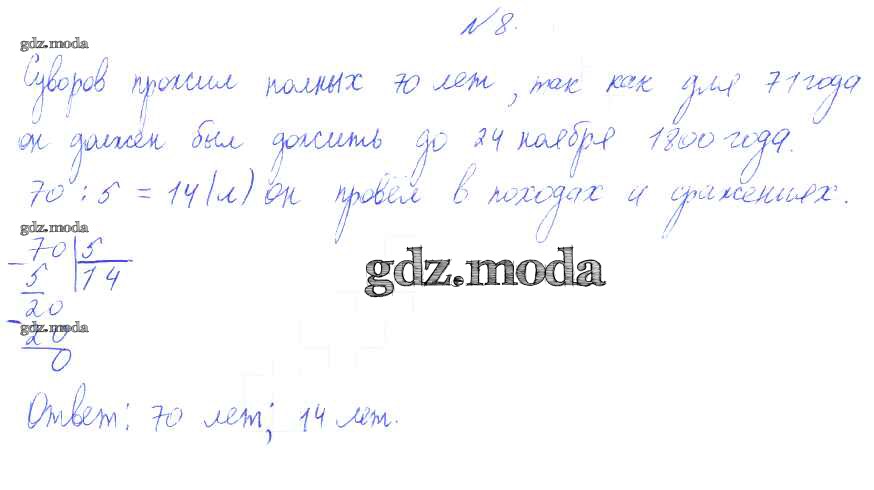 №8.
gdz.moda
Суворов прожил полных 70 лет, так как для 71 года
он должен был дожить до 24 ноября 1800 года.
70 : 5 = 14 (л) он провёл в походах и сражениях.
gdz.moda
70 | 5
gdz.moda
5 | 14
20
gdz.moda
20
0
Ответ: 70 лет; 14 лет.